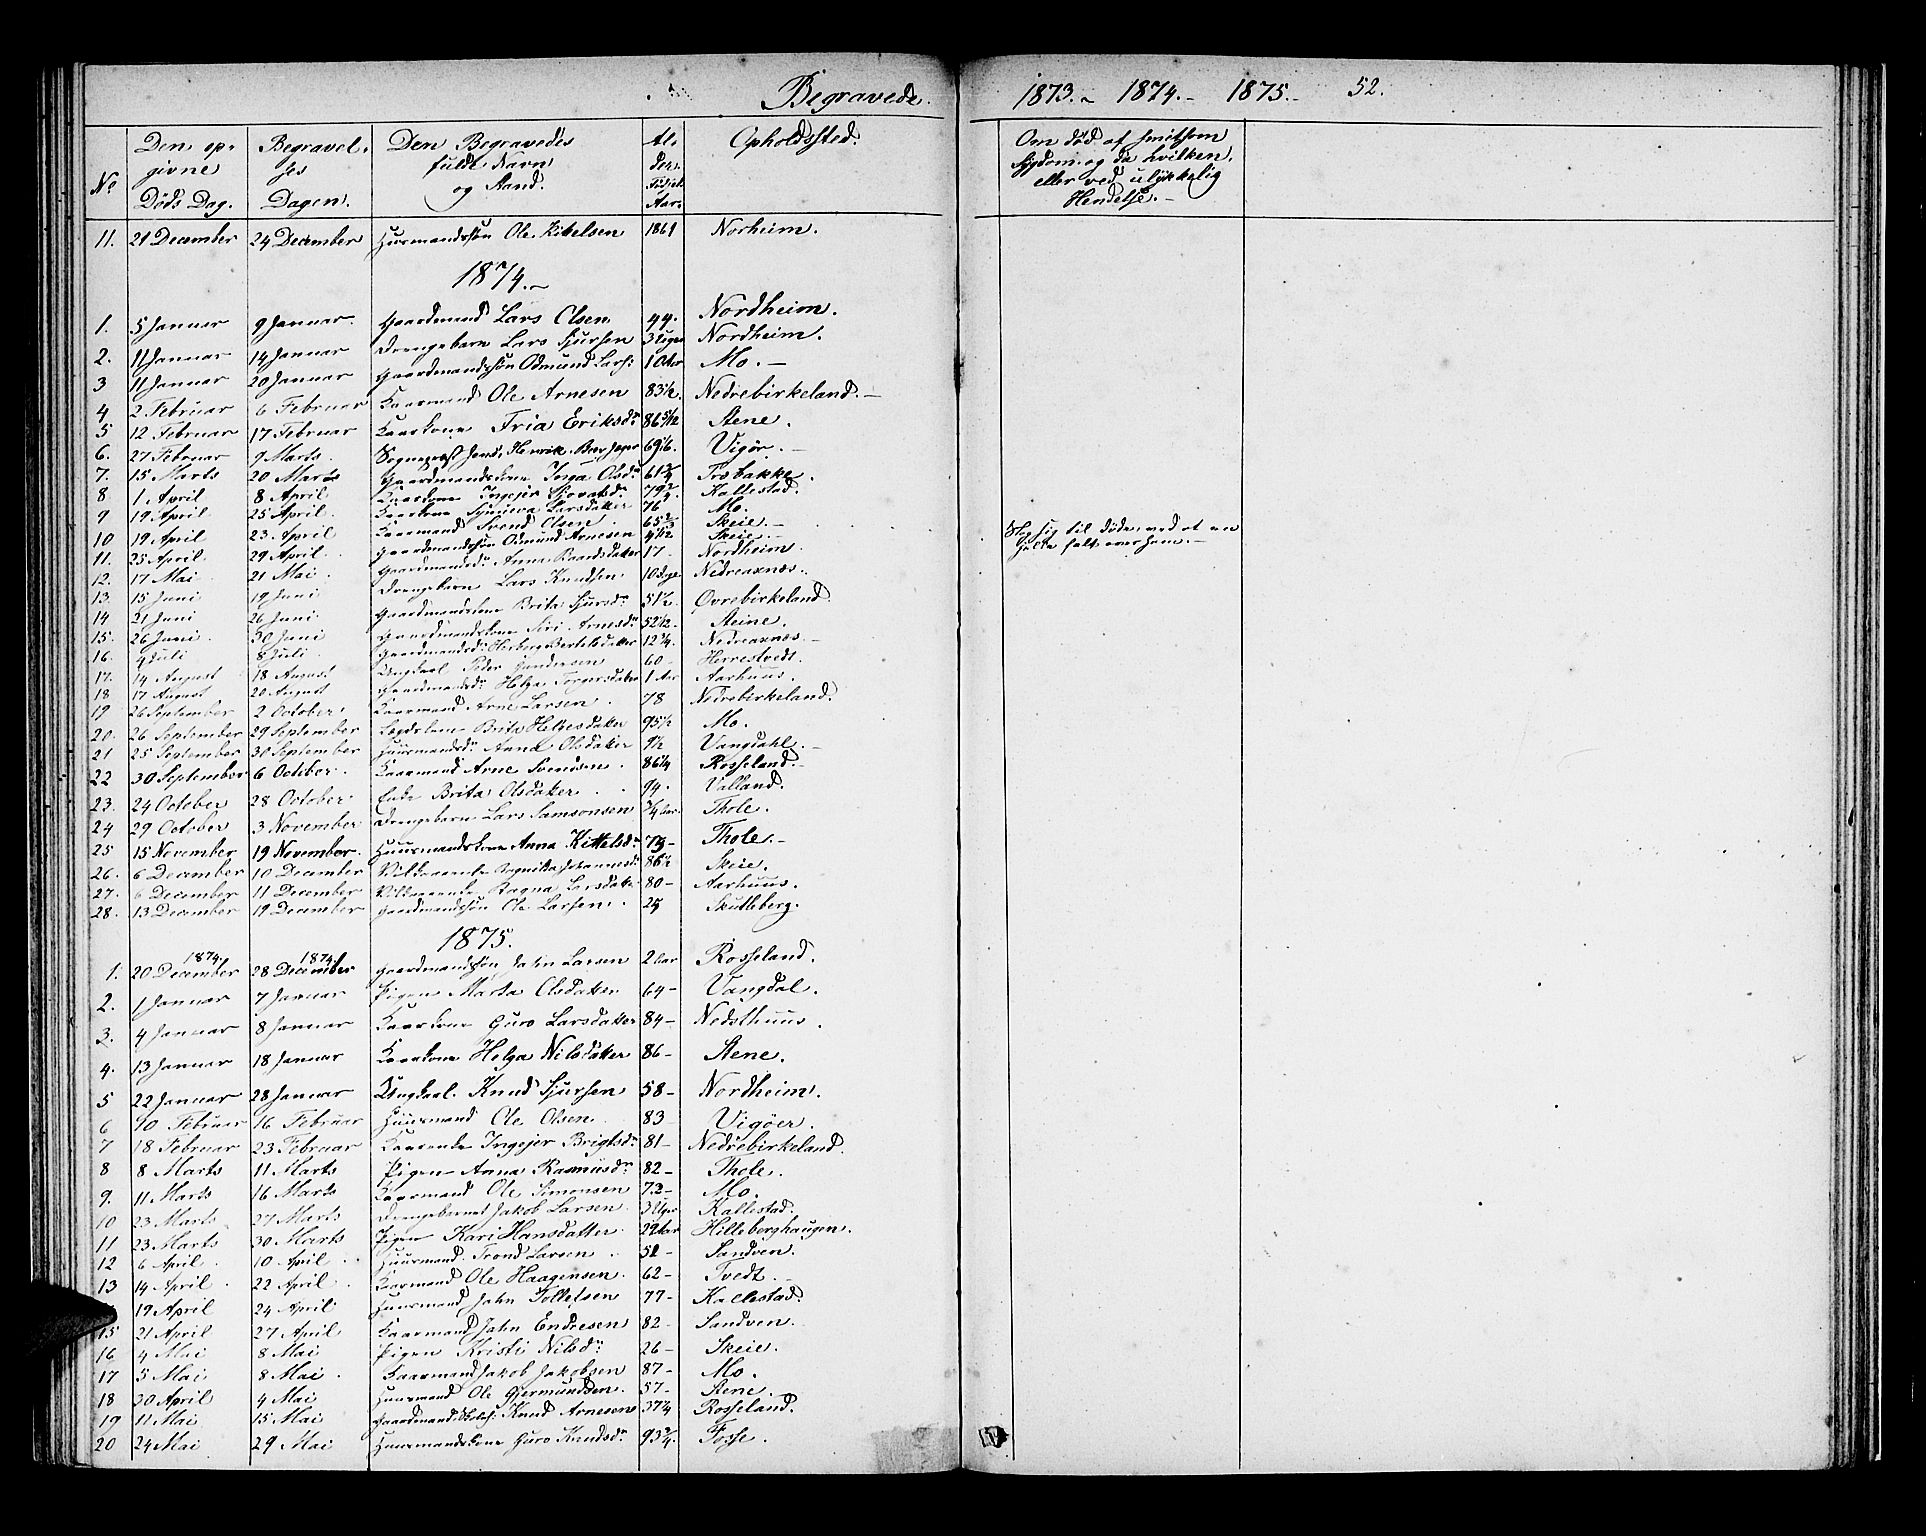 Begravede. 1873.~ 1874.- 1875.- 52.
No
Den op-
givne
Döds Dag.
Begravel-
ses
Dagen.
Den Begravedes
fulde Navn
og Stand.
Al-
der
Aar.
Opholdssted.
Om död af smitsom
Sygdom og da hvilken,
eller ved ulykkelig
Hendelse.-
11. 21 December 24 December Huusmandssön Ole Kittelsen 1861 Norheim.
1874.~
1. 5 Januar 9 Januar. Gaardmand Lars Olsen 44. Nordheim.
2. 11 Januar 14 Januar Drengebarn Lars Sjursen 3 Uger Nordheim.
3 11 Januar 20 Januar Gaardmandssön Odmund Lars: 1 Aar Mo.-
4 2 Februar 6 Februar Kaarmand Ole Arnesen 83 1/2. Nedrebirkeland.-
5 12 Februar 17 Februar Kaarkone Fria Eriksdr 86 5/12 Stene.
6. 27 Februar 9 Marts. Sogneprest Jens Henrik Jeger 69 1/6. Vigör.-
7. 15 Marts 20 Marts Gaardmandskone Inga Olsdr 61 3/4 Træbakke.
8 1 April 8 April Kaarkone Ingejer Sjovatsdr 79 3/4. Kallestad.
9 19 April 25 April. Kaarkone Synneva Larsdatter 76 Mo.
10 19 April 23 April Kaarmand Svend Olsen. 65 2/3 Skeie.-
11. 25 April 29 April. Gaardmandssön Odmund Arnesen 4 1/12 Skeie.- Slog sig til döde, ved at en
falt over ham.-
12. 17 Mai 21 Mai. Gaardmandsdr Anna Baardsdatter 17- Nordheim.
13. 15 Juni 19 Juni Drengebarn Lars Knudsen 10 dage Nedreaxnæs.
14 21 Juni 26 Juni Gaardmandskone Brita Sjursdr 51 1/2. Övrebirkeland.
15. 26 Juni. 30 Juni Gaardmandskone Siri Arnesdr 52 1/2. Steine.
16. 4 Juli 8 Juli. Gaardmandsdr Herborg Bertelsdatter 12 3/4. Nedreaxnæs.-
17. 14 August 18 August Ungkarl Peder Gundersen 60- Herrestvedt.
18 17 August 20 August Gaardmandsdr Helga Torgersdatter 1 Aar Aarhuus.
19 26 September 2 October. Kaarmand Arne Larsen. 78 Nedrebirkeland.
20. 26 September 29 September Legdslem Brita Helgesdatter 95 1/2 Mo.
21 25 September 30 September Huusmandsdr Anna Olsdatter 9 1/2 Vangdahl.-
22 30 September 6 October. Kaarmand Arne Svendsen. 86 1/4 Rosseland.-
23. 24 October 28 October. Enke Brita Olsdatter. 94. Valland.
24 29 October 3 November Drengebarn Lars Samsonsen 3/4 Aar. Thole.
25 15 November 19 November. Huusmandskone Anna Kittelsdr 75- Thole.-
26. 6 December 10 December Johannesdr 86 1/2 Skeie.
27. 6 December 11 December Ragna Larsdatter 80- Aarhuus.
28. 13 December 19 December Gaardmandssön Ole Larsen. 25 Skutleberg.
1875.
1. 20 December 1874 28 December 1874 Gaardmandssön John Larsen 2 Aar Rosseland.
2. 1 Januar 7 Januar Pigen Marta Olsdatter 64- Vangdal.
3. 4 Januar 8 Januar Kaarkone Guro Larsdatter 84- Nedsthuus.
4. 13 Januar 18 Januar Kaarkone Helga Nilsdatter 86- Stene.
5 22 Januar 28 Januar Ungkarl. Knud Sjursen 58- Nordheim.
6 10 Februar 16 Februar Huusmand Ole Olsen. 83 Vigöer.
7 18 Februar 23 Februar Kaarenke Ingejer Brigtsdr 81- Nedrebirkeland.
8 8 Marts 11 Marts Pigen Anna Rasmusdr 82- Thole.
9. 11 Marts 16 Marts Kaarmand Ole Simonsen 72- Mo.
10 23 Marts 27 Marts Drengebarnet Jakob Larsen. 3 Uger Kallestad.
11 23 Marts 30 Marts Pigen Kari Hansdatter. 29 Aar Hilleberghaugen.
12 6 April. 10 April. Huusmand Trond Larsen. 51- Sandven.
13 14 April. 22 April. Kaarmand Ole Haagensen. 62- Tvedt.-
19 April 24 April Huusmand John Tollefsen 77- Kallestad.
15 21 April 27 April. Kaarmand John Endresen 82- Sandven.
16 4 Mai 8 Mai Pigen Kristi Nilsdr 26- Skeie.
17 5 Mai 8 Mai. Kaarmand Jakob Jakobsen 87- Mo.
18 30 April 4 Mai Huusmand Ole Gjermundsen. 57- Stene.
19 11 Mai 15 Mai Gaardmand Knud Arnesen 37 1/4 Rosseland.
20 24 Mai 29 Mai Huusmandskone Guro Knudsdr 93 3/4. Fosse.